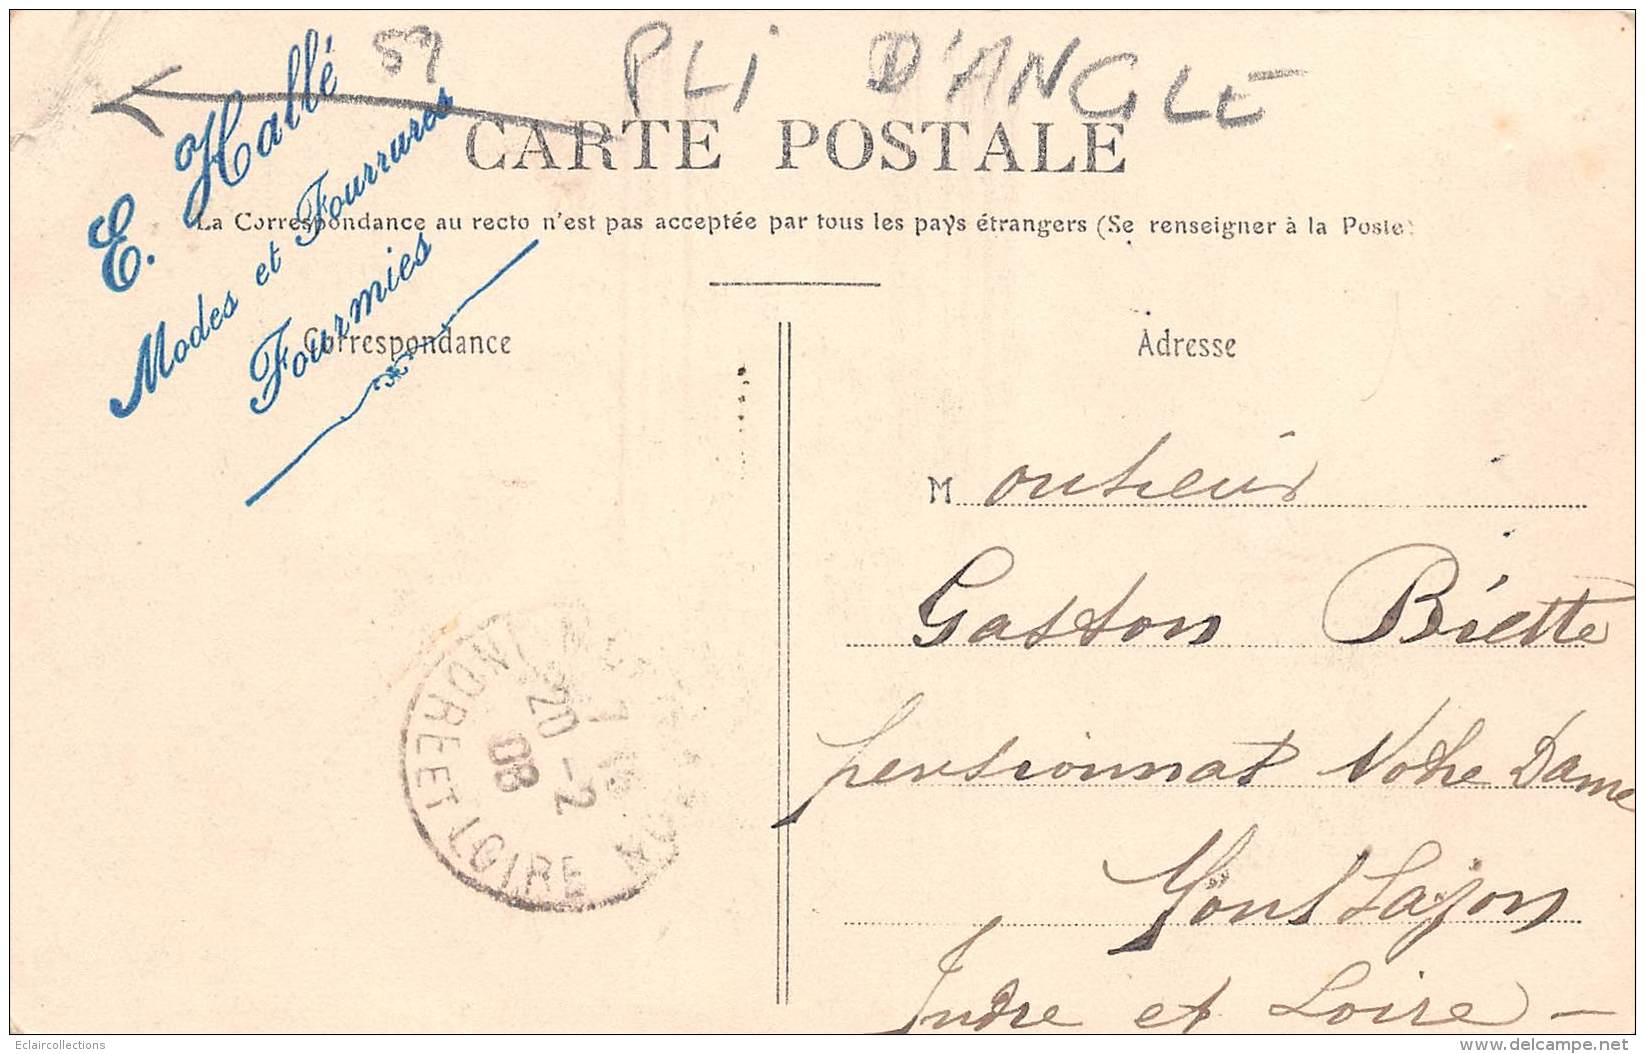 59
PLI D'ANGLE
E. Hallé
Modes et Fourrures
Fourmies
CARTE POSTALE
La Correspondance au recto n'est pas acceptée par tous les pays étrangers (Se renseigner à la Poste)
Correspondance
Adresse
Monsieur
Gaston Biette
pensionnat Notre Dame
Mont Lajon
Indre et Loire
INDRE ET LOIRE
20 - 2
08
Eclaircollections
www.delcampe.net